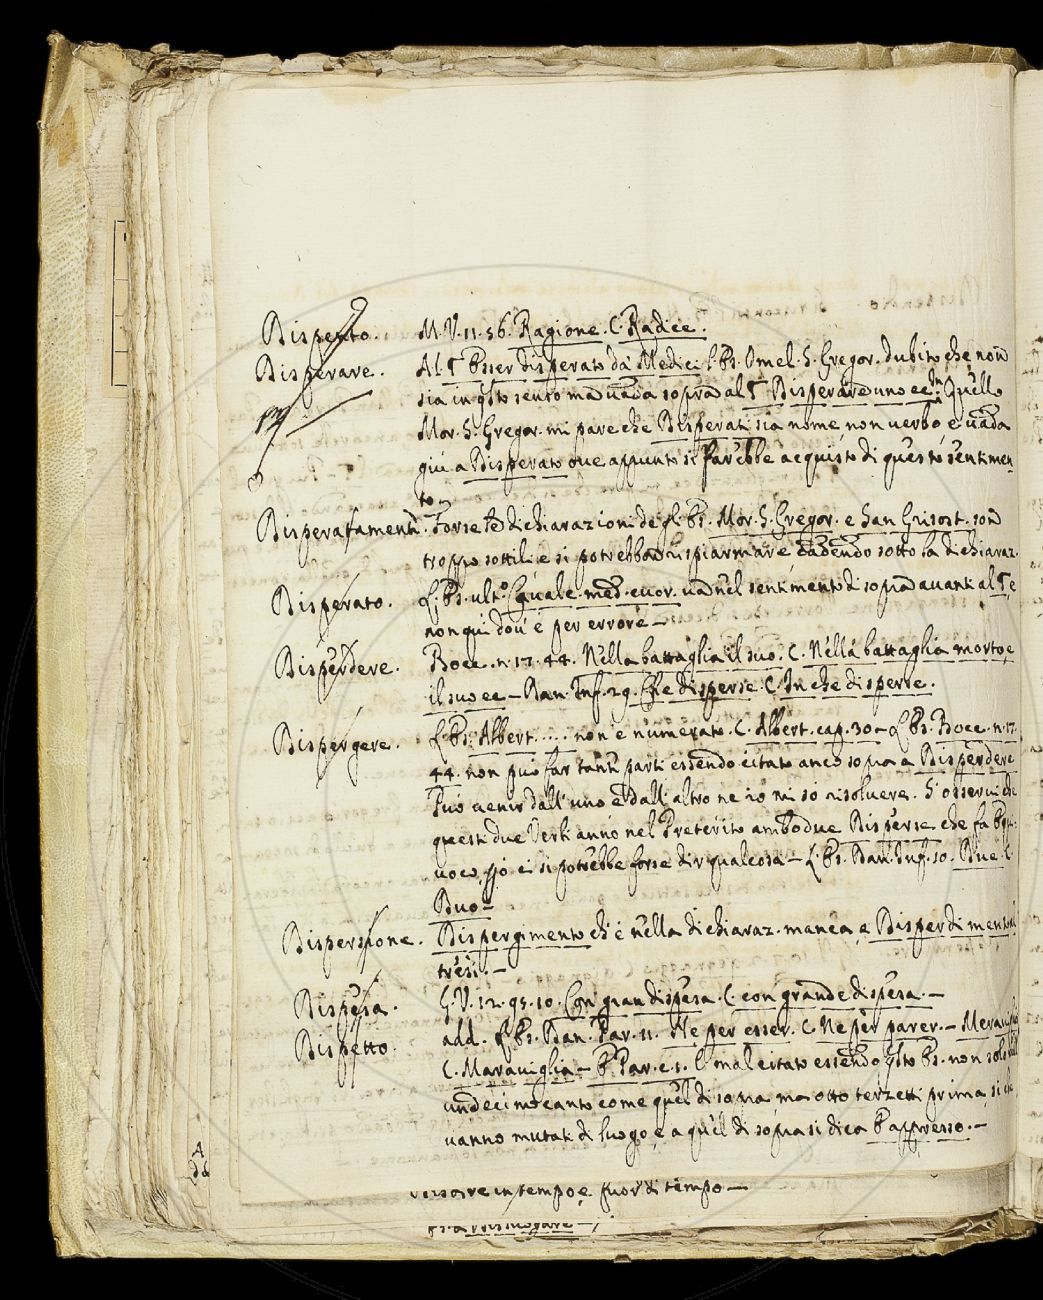 Dispento. M. V. 11. 56. Ragione. C. Radice.
Disperare. Al § Esser disperato da Medici l'Es. Omel. S. Gregor. dubito che non
sia in qsto senso ma vada sopra al § Disperare uno ec. Quello
Mor. S. Gregor. mi pare che Disperati sia nome, non verbo, e vada
giù a Disperato ove appunto si farebbe acquisto di questo sentimen
to —
Disperatamente. Forse le dichiarazioni de gl'Es. Mor. S. Gregor. e San Grisost. son
troppo sottili e si potrebbon risparmiare cadendo sotto la dichiaraz.
Disperato. L'Es. ulto. Eguale med. cuor. va nel sentimento di sopra avanti al § e
non qui dov'è per errore —
Disperdere. Bocc. n. 17. 44. Nella battaglia il suo. C. Nella battaglia morto, e
il suo ec — Dan. Inf. 29. Che disperse C. In che disperse.
Dispergere. L'Es. Albert..... non è numerato. C. Albert. cap. 30 — L'Es. Bocc. n. 17.
44. non può far tanti parti essendo citato anco sopra a Disperdere
Può venir dall'uno e dall'altro ne io mi so risolvere. S'osservi che
questi due Verbi anno nel Preterito ambodue Disperse che fa Equi-
voco, ci si potrebbe forse dir qualcosa — L'Es. Dan. Inf. 10. Due C.
Duo —
Dispersione. Dispergimento ch'è nella dichiaraz. manca, e Disperdimento
tresì —
Dispesa. G. V. 12. 95. 10. Con gran dispesa. C. con grande dispesa. —
Dispetto. add. L'Es. Dan. Par. 11. Ne per esser. C. Ne per parer. — Meraviglia
C. Maraviglia — E. Par. c. 1. È mal citato essendo qsto Es. non solo
undecimo canto come quel di sopra ma otto terzetti prima, si che
vanno mutati di luogo, e a quel di sopra si dica E appresso. —
in tempo, e fuor di tempo —